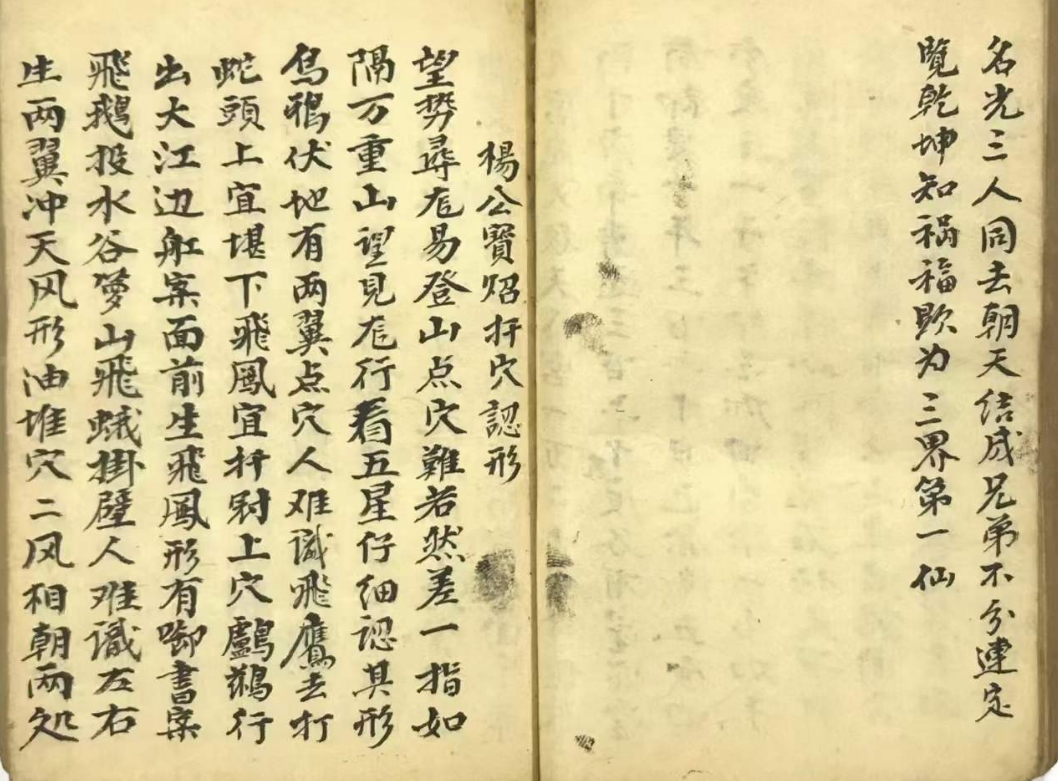 名光三人同去朝天结成兄弟不分連定
覽乾坤知禍福欤为三界第一仙
楊公寳炤扦穴認形
望势尋龙易登山点穴難若然差一指如
隔万重山望見龙行看五星仔细認其形
烏鴉伏地有两翼点穴人难识飛鷹去打
蛇頭上宜堪下飛鳳宜扦尉上穴鸕鷀行
出大江边舡案面前生飛鳳形有啣書案
飛鵝投水谷箩山飛蛾掛壁人难識左右
生两翼冲天风形油堆穴二风相朝两处